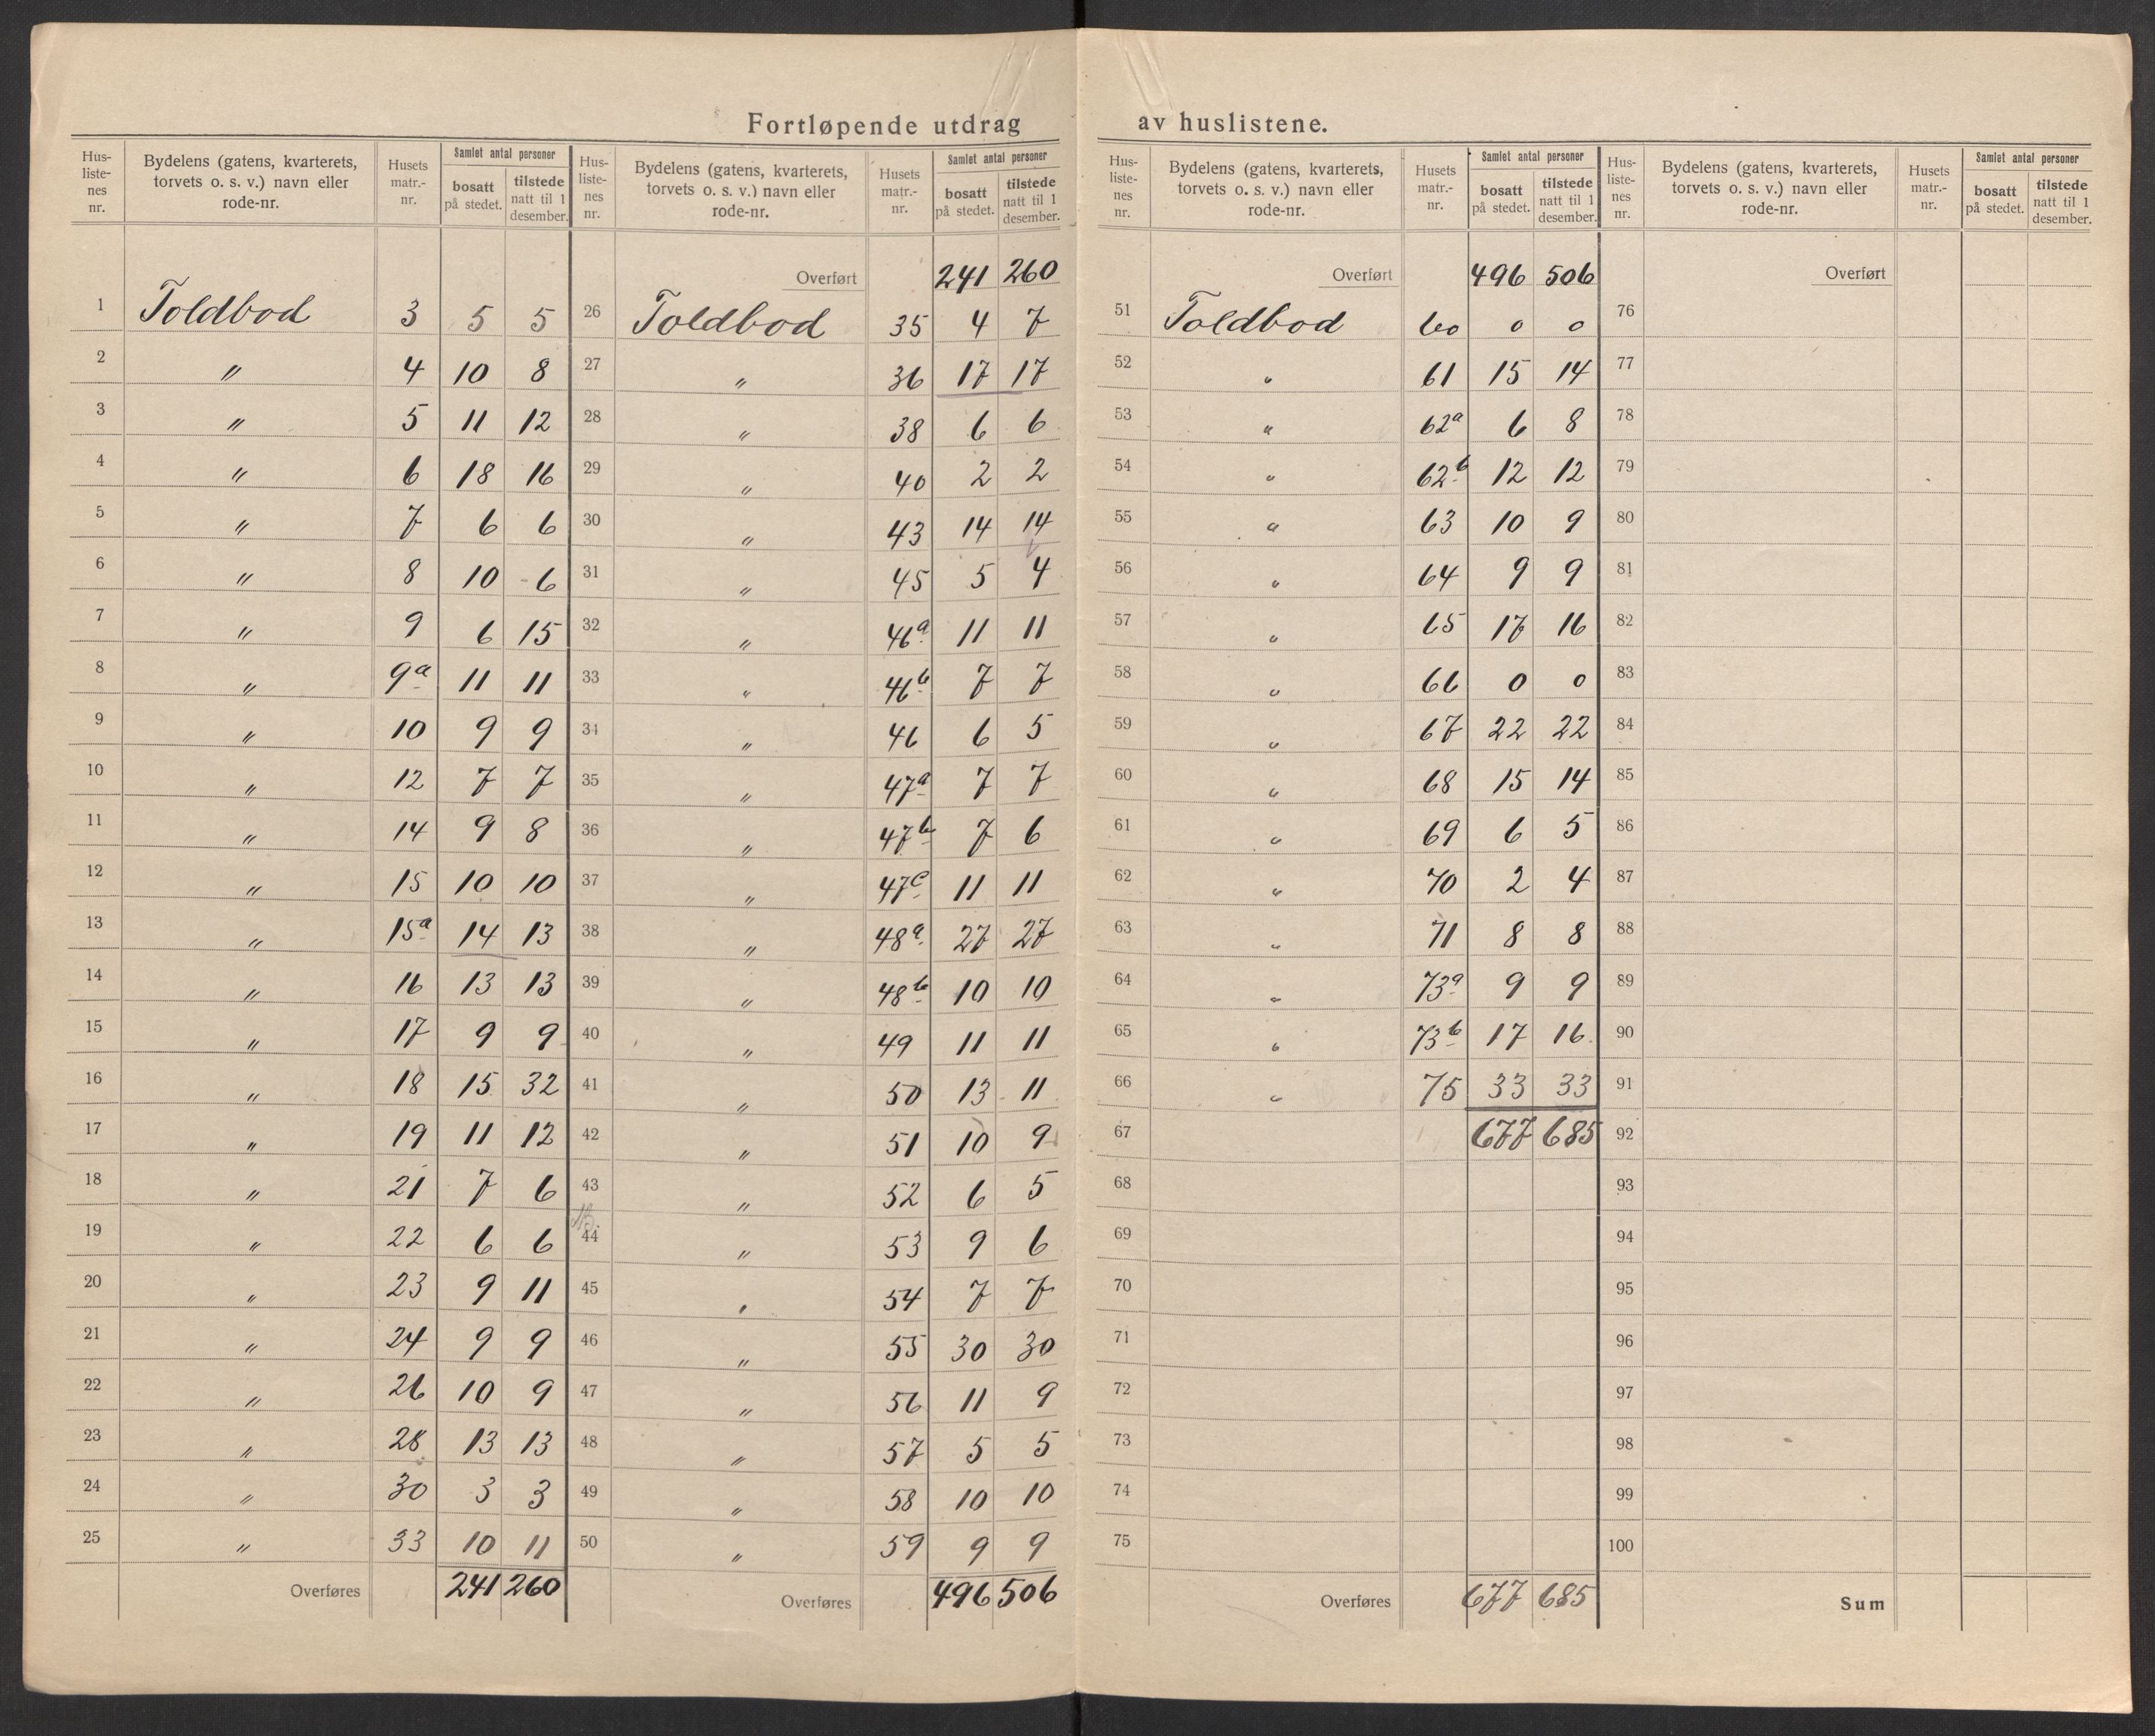 Fortløpende utdrag av huslistene.
Hus-listenes nr. | Bydelens (gatens, kvarterets, torvets o. s. v.) navn eller rode-nr. | Husets matr.-nr. | Samlet antal personer bosatt på stedet. | tilstede natt til 1 desember.
1 Toldbod 3 5 5
2 " 4 10 8
3 " 5 11 12
4 " 6 18 16
5 " 7 6 6
6 " 8 10 6
7 " 9 6 15
8 " 9a 11 11
9 " 10 9 9
10 " 12 7 7
11 " 14 9 8
12 " 15 10 10
13 " 15a 14 13
14 " 16 13 13
15 " 17 9 9
16 " 18 15 32
17 " 19 11 12
18 " 21 7 6
19 " 22 6 6
20 " 23 9 11
21 " 24 9 9
22 " 26 10 9
23 " 28 13 13
24 " 30 3 3
25 " 33 10 11
Overføres 241 260
Hus-listenes nr. | Bydelens (gatens, kvarterets, torvets o. s. v.) navn eller rode-nr. | Husets matr.-nr. | Samlet antal personer bosatt på stedet. | tilstede natt til 1 desember.
Overført 241 260
26 Toldbod 35 4 7
27 " 36 17 17
28 " 38 6 6
29 " 40 2 2
30 " 43 14 14
31 " 45 5 4
32 " 46a 11 11
33 " 46b 7 7
34 " 46 6 5
35 " 47a 7 7
36 " 47b 7 6
37 " 47c 11 11
38 " 48a 27 27
39 " 48b 10 10
40 " 49 11 11
41 " 50 13 11
42 " 51 10 9
43 " 52 6 5
44 " 53 9 6
45 " 54 7 7
46 " 55 30 30
47 " 56 11 9
48 " 57 5 5
49 " 58 10 10
50 " 59 9 9
Overføres 496 506
Hus-listenes nr. | Bydelens (gatens, kvarterets, torvets o. s. v.) navn eller rode-nr. | Husets matr.-nr. | Samlet antal personer bosatt på stedet. | tilstede natt til 1 desember.
Overført 496 506
51 Toldbod 60 0 0
52 " 61 15 14
53 " 62a 6 8
54 " 62b 12 12
55 " 63 10 9
56 " 64 9 9
57 " 65 17 16
58 " 66 0 0
59 " 67 22 22
60 " 68 15 14
61 " 69 6 5
62 " 70 2 4
63 " 71 8 8
64 " 73a 9 9
65 " 73b 17 16
66 " 75 33 33
67 677 685
68
69
70
71
72
73
74
75
Overføres 677 685
Hus-listenes nr. | Bydelens (gatens, kvarterets, torvets o. s. v.) navn eller rode-nr. | Husets matr.-nr. | Samlet antal personer bosatt på stedet. | tilstede natt til 1 desember.
Overført
76
77
78
79
80
81
82
83
84
85
86
87
88
89
90
91
92
93
94
95
96
97
98
99
100
Sum